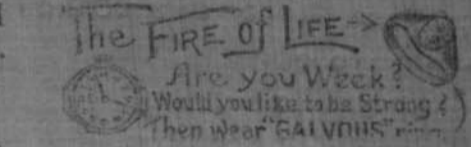 The FIRE of LIFE
Are you Week?
Would you like to be Strong?
Then wear "GALVOUS"